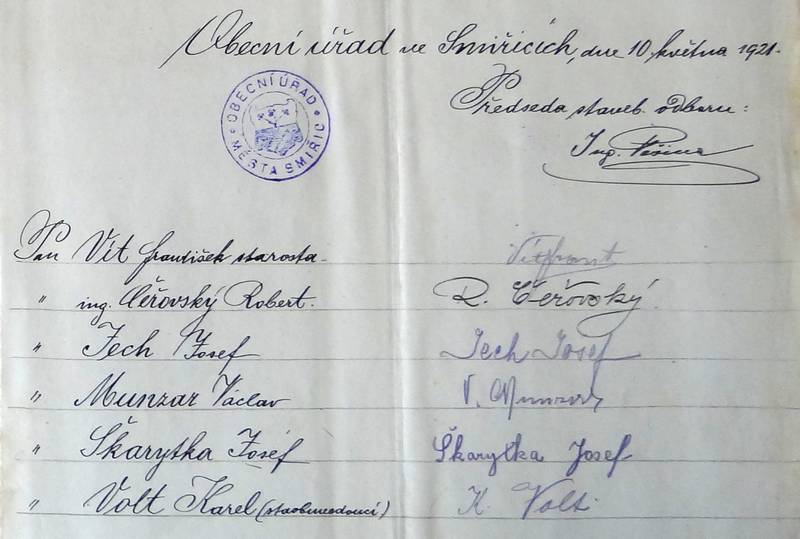 Obecní úřad ve Smiřicích, dne 10. května 1921.
OBECNÍ ÚŘAD MĚSTA SMIŘIC
Předseda staveb. odboru:
Ing.
Pan Vít František starosta
Vítfrant
" ing. Čeřovský Robert.
R. Čeřovský
" Jech Josef
Jech Josef
" Munzar Václav
V. Munzar
" Škarytka Josef
Škarytka Josef
" Volt Karel
K. Volt